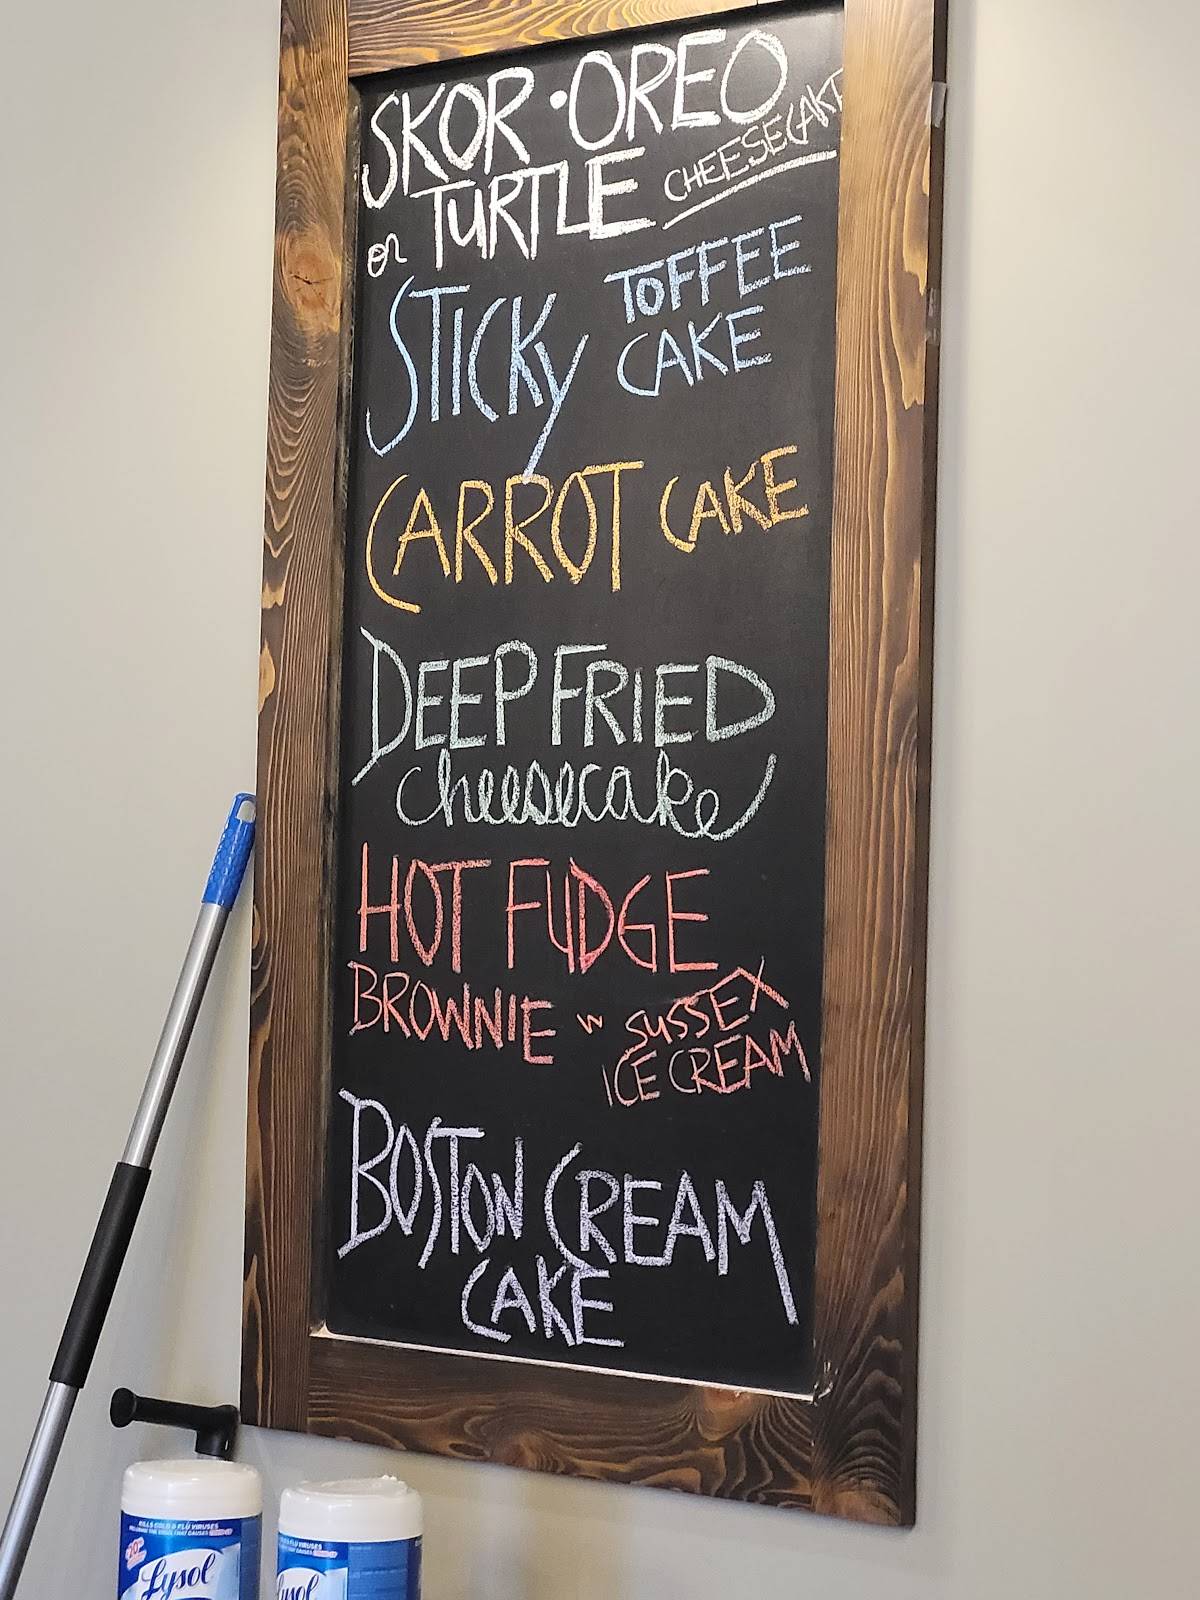 SKOR • OREO
or TURTLE CHEESECAKE
STICKY TOFFEE
CAKE
CARROT CAKE
DEEP FRIED
cheesecake
HOT FUDGE
BROWNIE w SUSSEX
ICE CREAM
BOSTON CREAM
CAKE
KILLS COLD & FLU VIRUSES
Lysol
Lysol